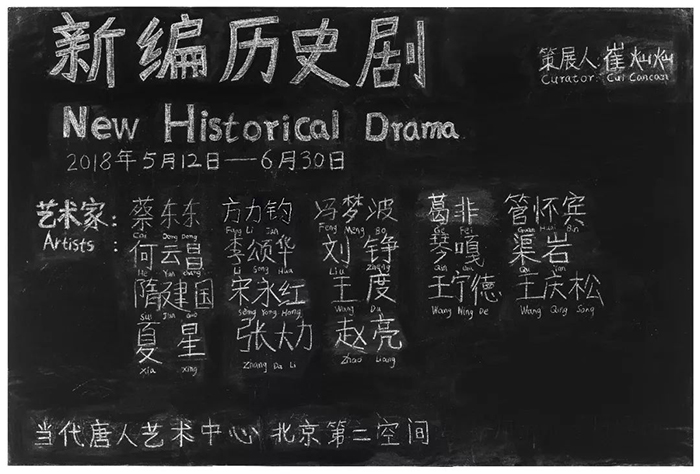 新编历史剧
策展人:崔灿灿
Curator: Cui Cancan
New Historical Drama
2018年5月12日—6月30日
艺术家: 蔡东东 方力钧 冯梦波 葛非 管怀宾
Artists : Cai Dong Dong Fang Li Jun Feng Meng Bo Ge Fei Guan Huai Bin
何云昌 李颂华 刘铮 琴嘎 渠岩
He Yun chang Li Song Hua Liu Zheng Qin Ga Qu Yan
隋建国 宋永红 王度 王宁德 王庆松
Sui Jian Guo Song Yong Hong Wang Du Wang Ning De Wang Qing Song
夏星 张大力 赵亮
Xia xing Zhang Da Li Zhao Liang
当代唐人艺术中心 北京第二空间